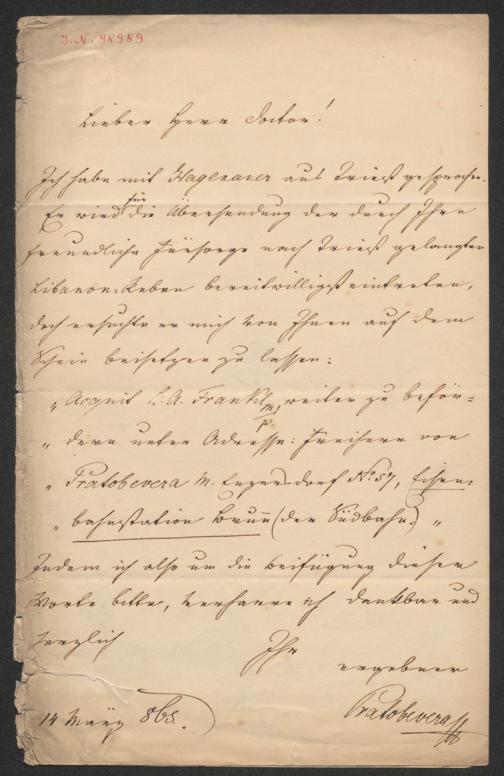 I. N. 98989
Lieber Herr Doctor!
Ich habe mit Hagenauer aus Triest gesprochen.
Er wird für die Übersendung der durch Ihre
freundliche Fürsorge nach Triest gelangten
Libanon-Reben bereitwilligst eintreten,
doch ersuchte er mich von Ihnen auf dem
Schein beisetzen zu lassen:
„Acquit L. A. Frankl m/p, weiter zu beför=
„ dern unter Adresse: Freiherr von
„ Pratobevera M. Enzersdorf No 57, Eisen=
„ bahnstation Brunn (der Südbahn.) "
Indem ich also um die Beifügung dieser
Worte bitte, verharre ich dankbar und
herzlich
Ihr
ergebner
Pratobevera
14 März 865.